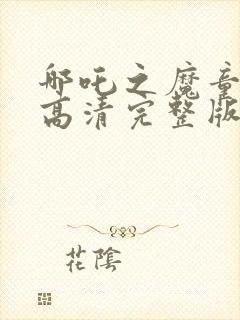 哪吒之魔童
高清完整版
花陰